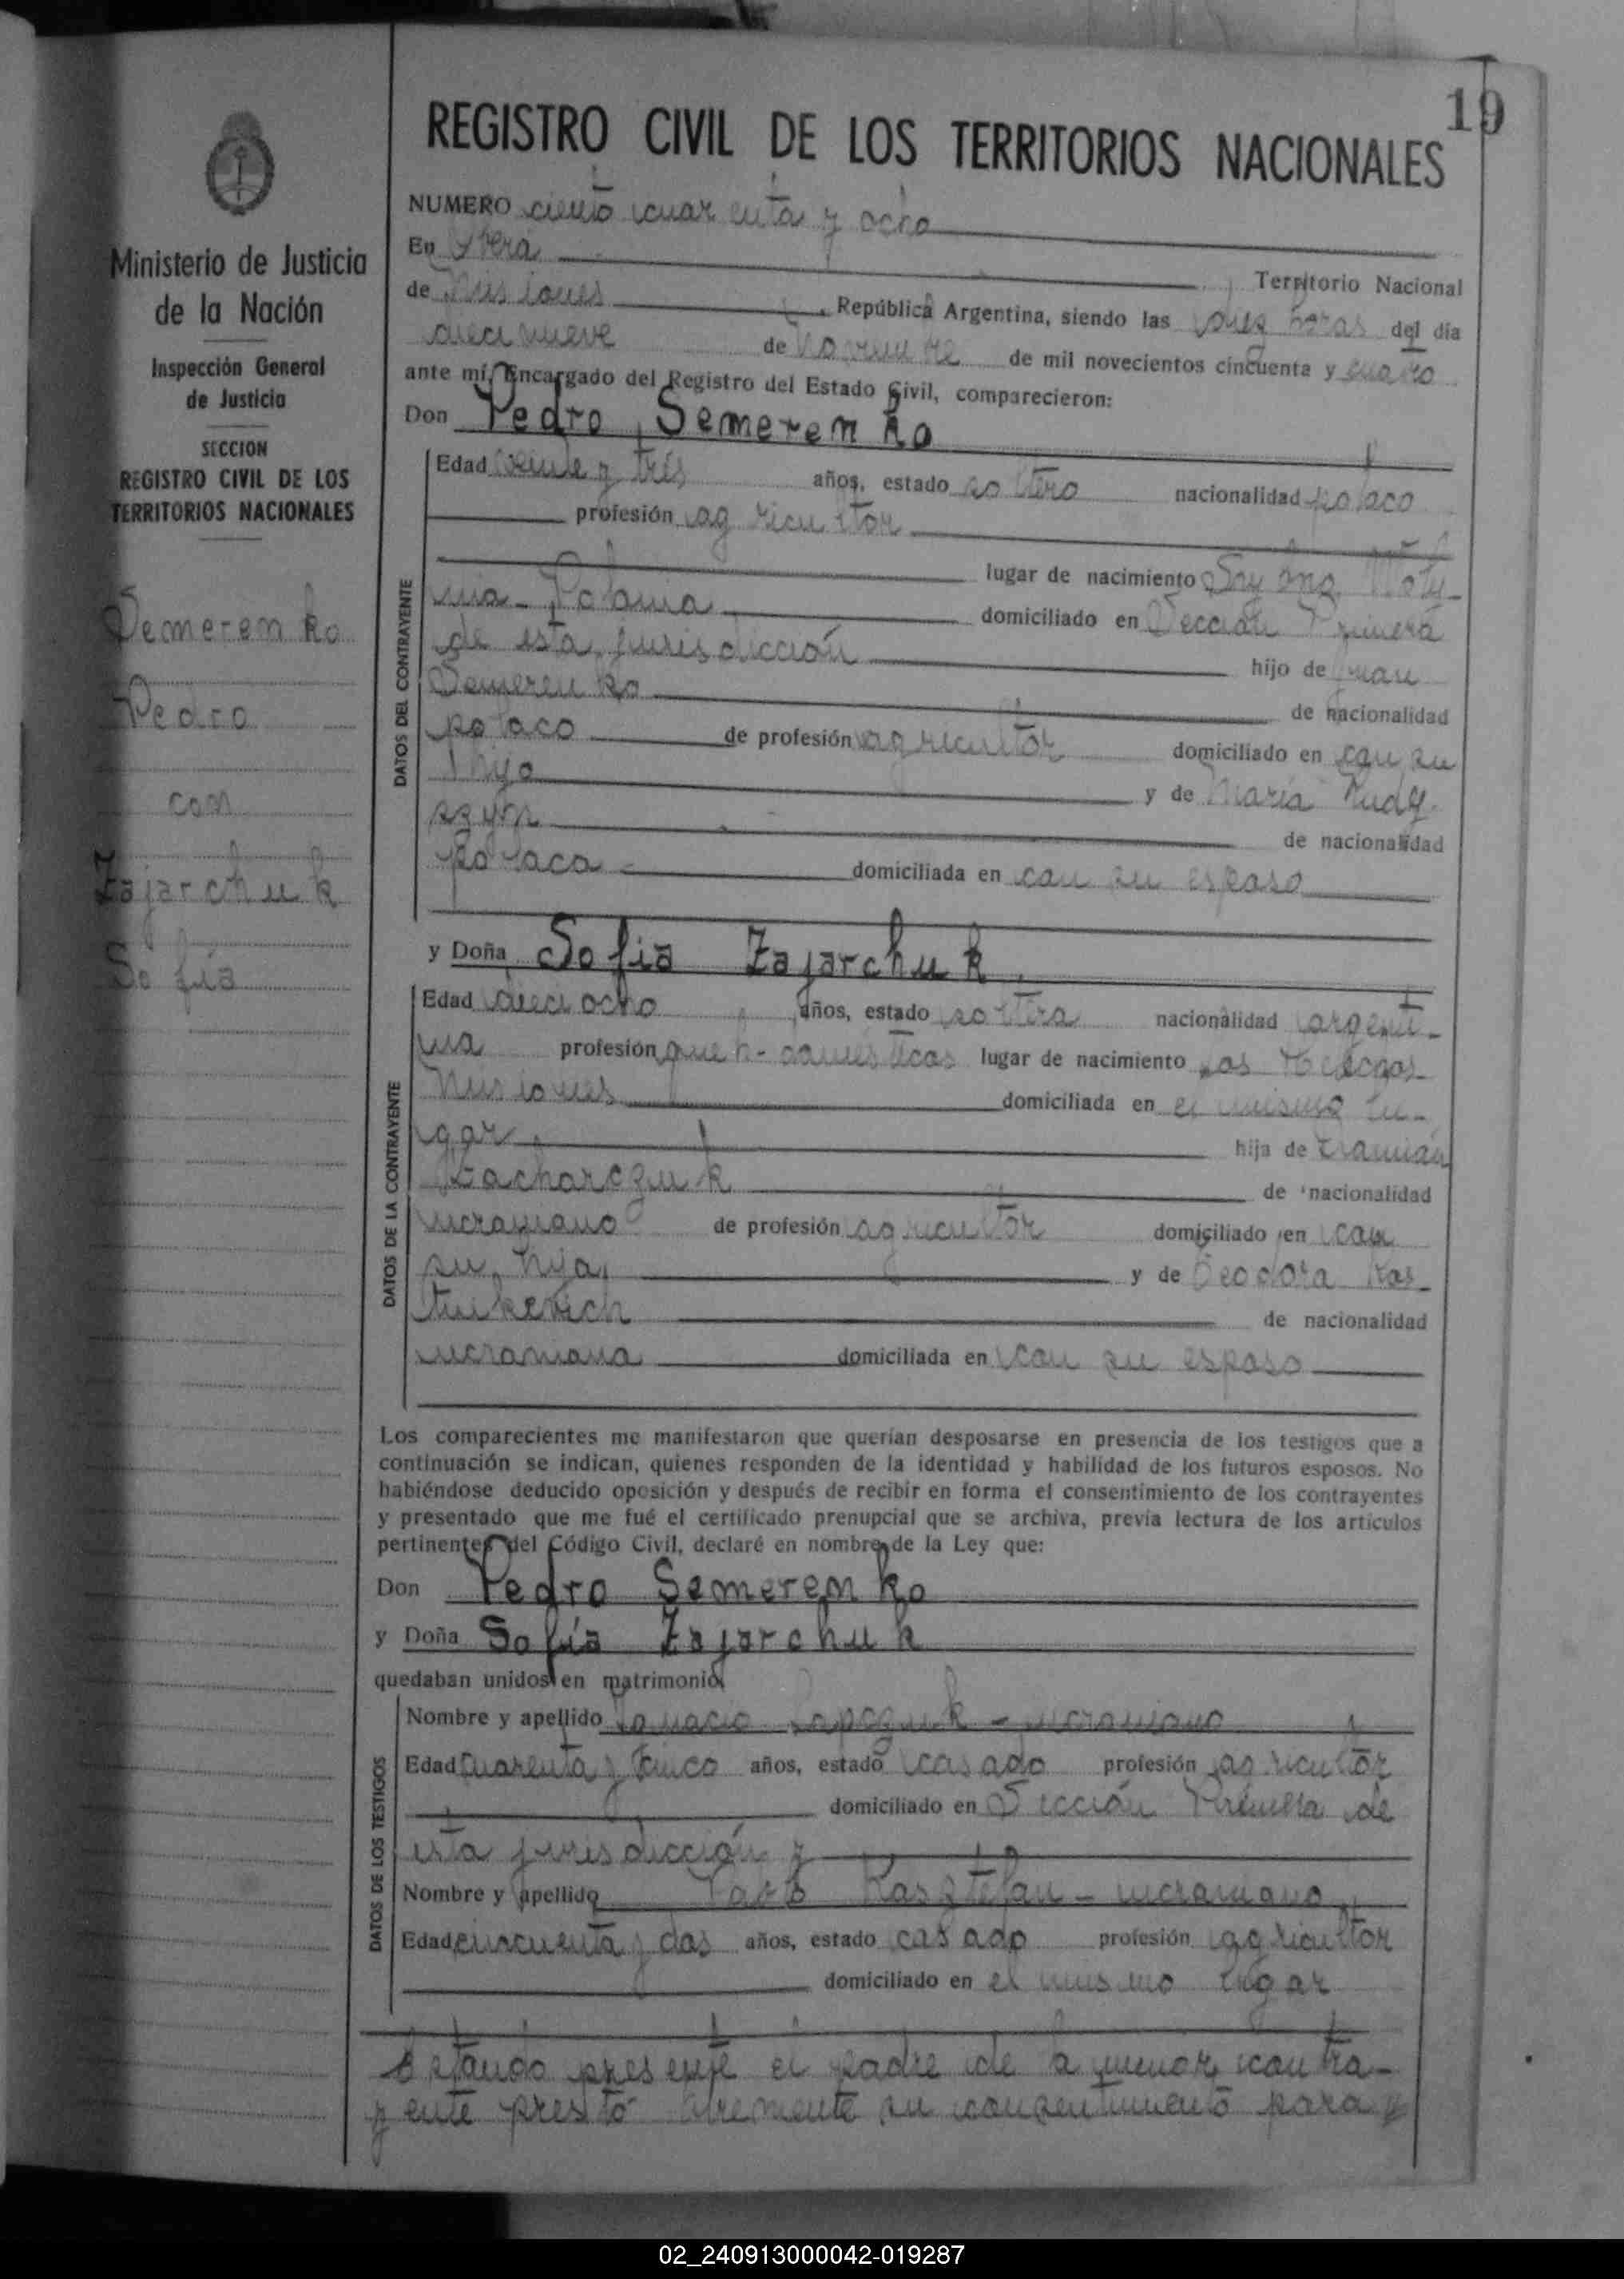 19
REGISTRO CIVIL DE LOS TERRITORIOS NACIONALES
Ministerio de Justicia
de la Nación
Inspección General
de Justicia
SECCION
REGISTRO CIVIL DE LOS
TERRITORIOS NACIONALES
Semerenko
Pedro
con
Zajarchuk
Sofía
NUMERO ciento cuarenta y ocho
En Oberá Territorio Nacional
de Misiones, República Argentina, siendo las horas del día
diecinueve de Noviembre de mil novecientos cincuenta y cuatro
ante mí, Encargado del Registro del Estado Civil, comparecieron:
Don Pedro Semerenko
DATOS DEL CONTRAYENTE
Edad veinte y tres años, estado soltero nacionalidad polaco
profesión agricultor
lugar de nacimiento
nia - Polonia domiciliado en Sección Primera
de esta jurisdicción hijo de Juan
Semerenko de nacionalidad
polaco de profesión agricultor domiciliado en con su
hijo y de María Rudy
szyn de nacionalidad
polaca domiciliada en con su esposo
y Doña Sofia Zajarchuk
DATOS DE LA CONTRAYENTE
Edad dieciocho años, estado soltera nacionalidad argenti-
na profesión queh- domésticos lugar de nacimiento
Misiones domiciliada en el mismo lu-
gar hija de
Zacharczuk de nacionalidad
ucraniano de profesión agricultor domiciliado en con
su hija, y de Teodora Kos-
tiukevich de nacionalidad
ucraniana domiciliada en con su esposo
Los comparecientes me manifestaron que querían desposarse en presencia de los testigos que a
continuación se indican, quienes responden de la identidad y habilidad de los futuros esposos. No
habiéndose deducido oposición y después de recibir en forma el consentimiento de los contrayentes
y presentado que me fué el certificado prenupcial que se archiva, previa lectura de los artículos
pertinentes del Código Civil, declaré en nombre de la Ley que:
Don Pedro Semerenko
y Doña Sofía Zajarchuk
quedaban unidos en matrimonio
DATOS DE LOS TESTIGOS
Nombre y apellido Ignacio Lapczuk - ucraniano
Edad cuarenta y cinco años, estado casado profesión agricultor
domiciliado en Sección Primera de
esta jurisdicción y
Nombre y apellido Pablo Kasztefan - ucraniano
Edad cincuenta y dos años, estado casado profesión agricultor
domiciliado en el mismo lugar
Estando presente el padre de la menor contra-
yente prestó libremente su consentimiento para
02_240913000042-019287